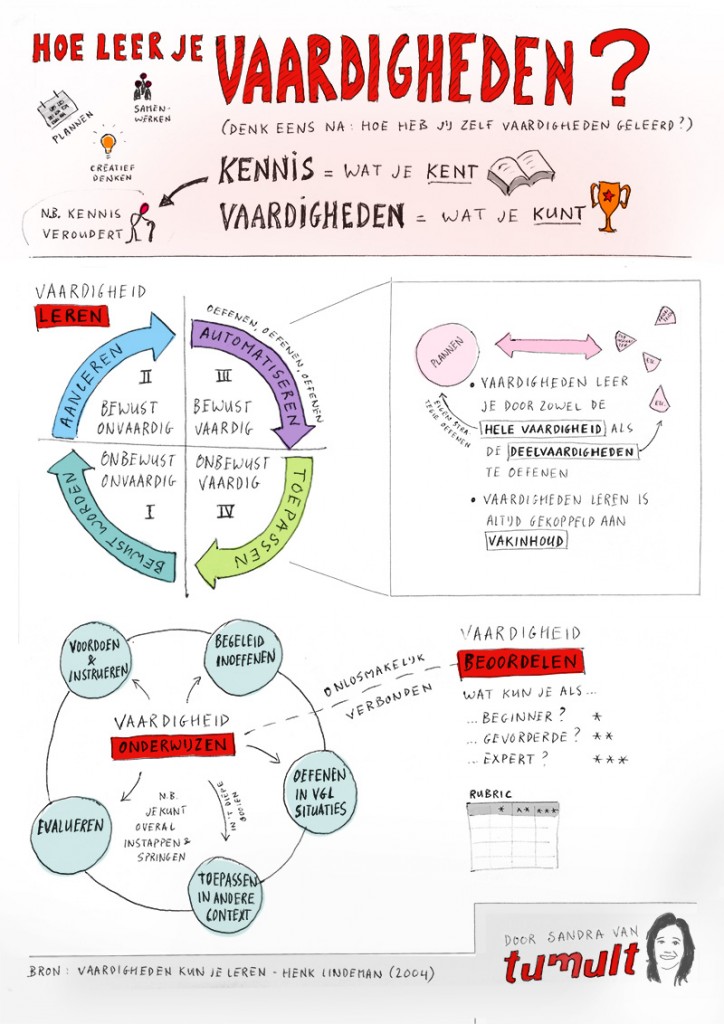 HOE LEER JE
VAARDIGHEDEN?
PLANNEN
SAMEN-
WERKEN
CREATIEF
DENKEN
(DENK EENS NA: HOE HEB JIJ ZELF VAARDIGHEDEN GELEERD?)
KENNIS = WAT JE KENT
VAARDIGHEDEN = WAT JE KUNT
N.B. KENNIS
VEROUDERT
VAARDIGHEID
LEREN
AANLEREN
II
BEWUST
ONVAARDIG
OEFENEN, OEFENEN, OEFENEN
AUTOMATISEREN
III
BEWUST
VAARDIG
BEWUST WORDEN
ONBEWUST
ONVAARDIG
I
TOEPASSEN
ONBEWUST
VAARDIG
IV
PLANNEN
EIGEN STRA
TEGIE OEFENEN
• VAARDIGHEDEN LEER
JE DOOR ZOWEL DE
HELE VAARDIGHEID ALS
DE DEELVAARDIGHEDEN
TE OEFENEN
• VAARDIGHEDEN LEREN IS
ALTIJD GEKOPPELD AAN
VAKINHOUD
VOORDOEN
&
INSTRUEREN
BEGELEID
INOEFENEN
VAARDIGHEID
ONDERWIJZEN
OEFENEN
IN VGL
SITUATIES
TOEPASSEN
IN ANDERE
CONTEXT
EVALUEREN
N.B.
JE KUNT
OVERAL
INSTAPPEN &
SPRINGEN
IN 'T DIEPE
GOOIEN
ONLOSMAKELIJK
VERBONDEN
VAARDIGHEID
BEOORDELEN
WAT KUN JE ALS...
...BEGINNER? *
...GEVORDERDE? **
...EXPERT? ***
RUBRIC
* ** ***
DOOR SANDRA VAN
tumult
BRON: VAARDIGHEDEN KUN JE LEREN - HENK LINDEMAN (2004)